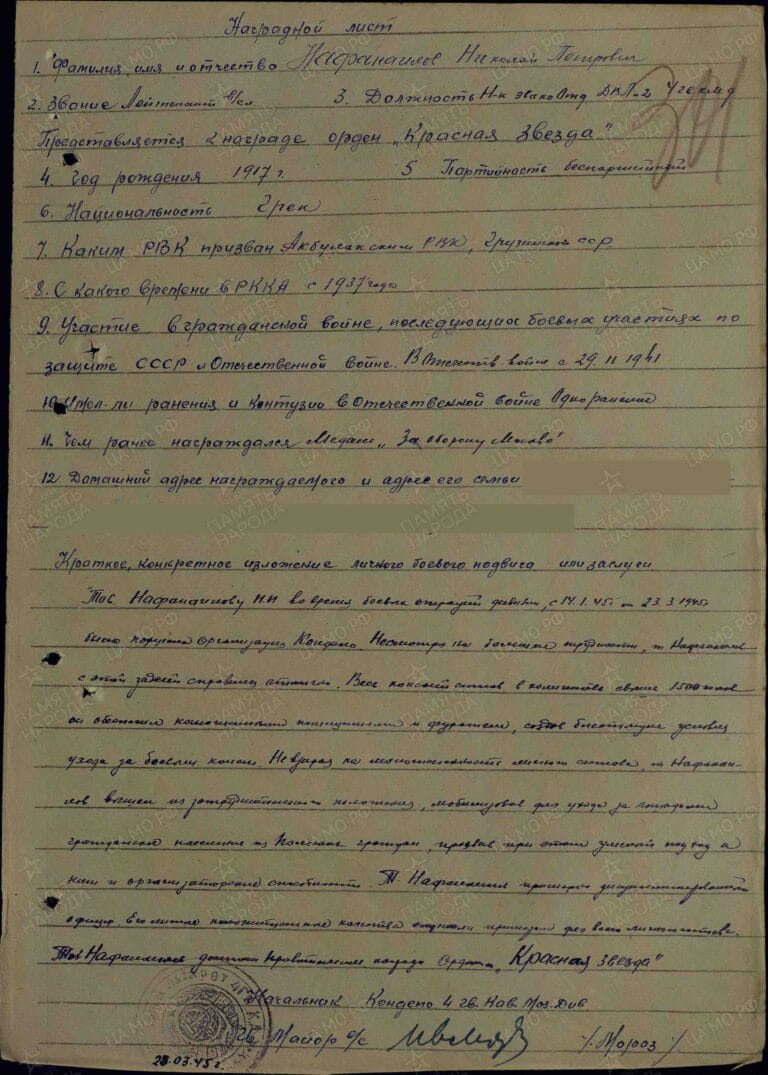 Наградной лист
1. Фамилия, имя и отчество Нафанаилов Николай Петрович
2. Звание Лейтенант в/сл 3. Должность Н-к
Представляется к награде орден „Красная Звезда"
4. Год рождения 1917 г. 5 Партийность беспартийный
6. Национальность Грек
7. Каким РВК призван РВК, Грузинской ССР
8. С какого времени в РККА с 1937 года
9. Участие в гражданской войне, последующих боевых участиях по
защите СССР и Отечественной войне. В Отечеств. войне с 29.11 1941
10. Имел-ли ранения и контузии в Отечественной войне Одно ранение
11. Чем ранее награждался Медаль „За оборону Москвы"
12 Домашний адрес награждаемого и адрес его семьи
Краткое, конкретное изложение личного боевого подвига или заслуги
Тов. Нафанаилову во время боевых операций дивизии, с 14.1.45г. по 23.3.1945г.
было поручено организация Кондепо. Несмотря на большие трудности, т. Нафанаилов
с этой задачей справился отлично. Весь конский состав в количестве свыше 1500 голов
он обеспечил помещениями и фуражем, создав условия
ухода за боевым конем. Невзирая на малочисленность личного состава, т. Нафанаи-
лов вышел из затруднительного положения, мобилизовав для ухода за лошадьми
гражданское население из Польских граждан, проявив при этом умелый подход к
ним и организаторские способности. Т. Нафанаилов
офицер. Его личные положительные качества служили примером для всего личного состава.
Тов Нафанаилов достоин Правительственной награды Ордена „Красная Звезда"
Начальник Кондепо 4 гв. Кав. Див
гв. Майор в/с /Мороз/
23.03.45 г.
ЦАМО.РФ
ПАМЯТЬ НАРОДА